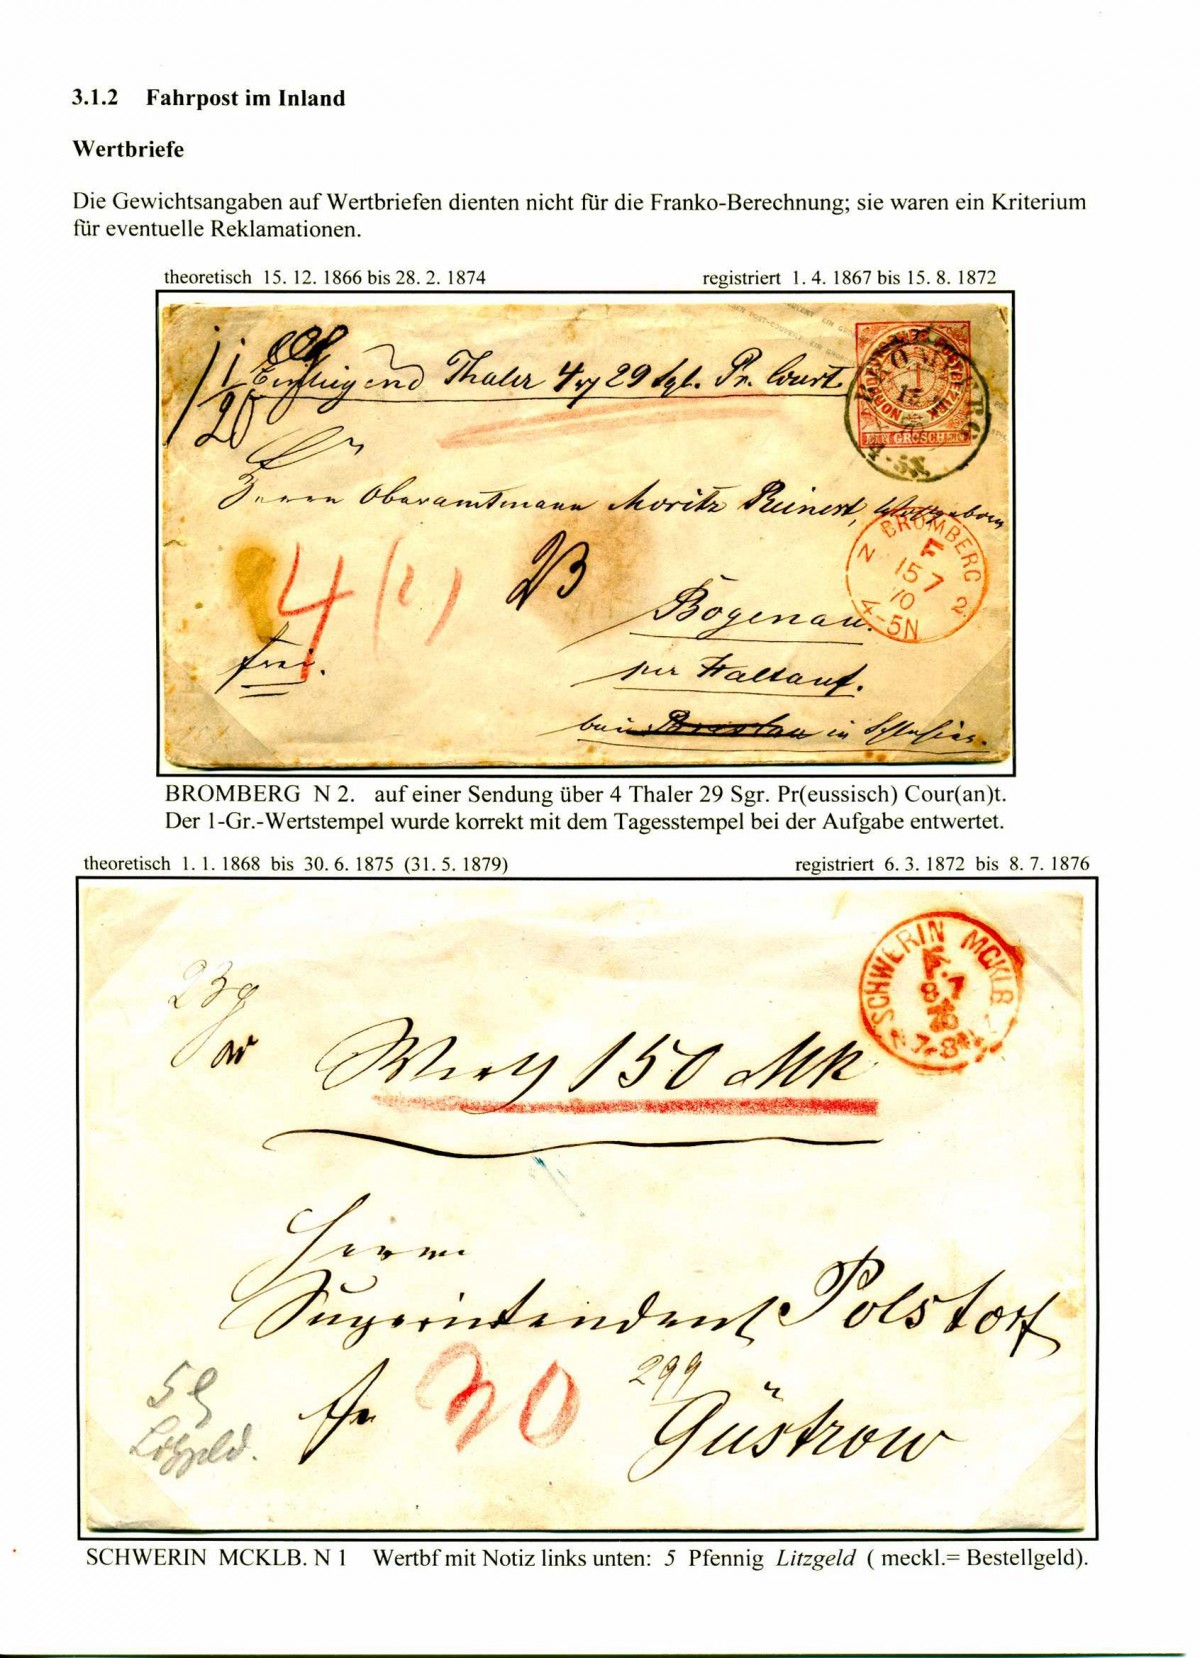 3.1.2 Fahrpost im Inland
Wertbriefe
Die Gewichtsangaben auf Wertbriefen dienten nicht für die Franko-Berechnung; sie waren ein Kriterium
für eventuelle Reklamationen.
theoretisch 15. 12. 1866 bis 28. 2. 1874 registriert 1. 4. 1867 bis 15. 8. 1872
Einliegend Thaler 4 29 Sgl. Pr. Court.
EIN GROSCHEN
Herrn Oberamtmann Moritz Reinert,
BROMBERG
F
15 7
70
4-5N
N 2
4 (1)
23
Bogenau.
frei.
per Kattauf.
bei Breslau in Schlesien.
BROMBERG N 2. auf einer Sendung über 4 Thaler 29 Sgr. Pr(eussisch) Cour(an)t.
Der 1-Gr.-Wertstempel wurde korrekt mit dem Tagesstempel bei der Aufgabe entwertet.
theoretisch 1. 1. 1868 bis 30. 6. 1875 (31. 5. 1879) registriert 6. 3. 1872 bis 8. 7. 1876
SCHWERIN MCKLB
8 7
76
7-8N
23 g
Werth 150 Mk
Herrn
Superintendent Polstorf
299
5
Litzgeld.
Güstrow
SCHWERIN MCKLB. N 1 Wertbf mit Notiz links unten: 5 Pfennig Litzgeld ( meckl.= Bestellgeld).